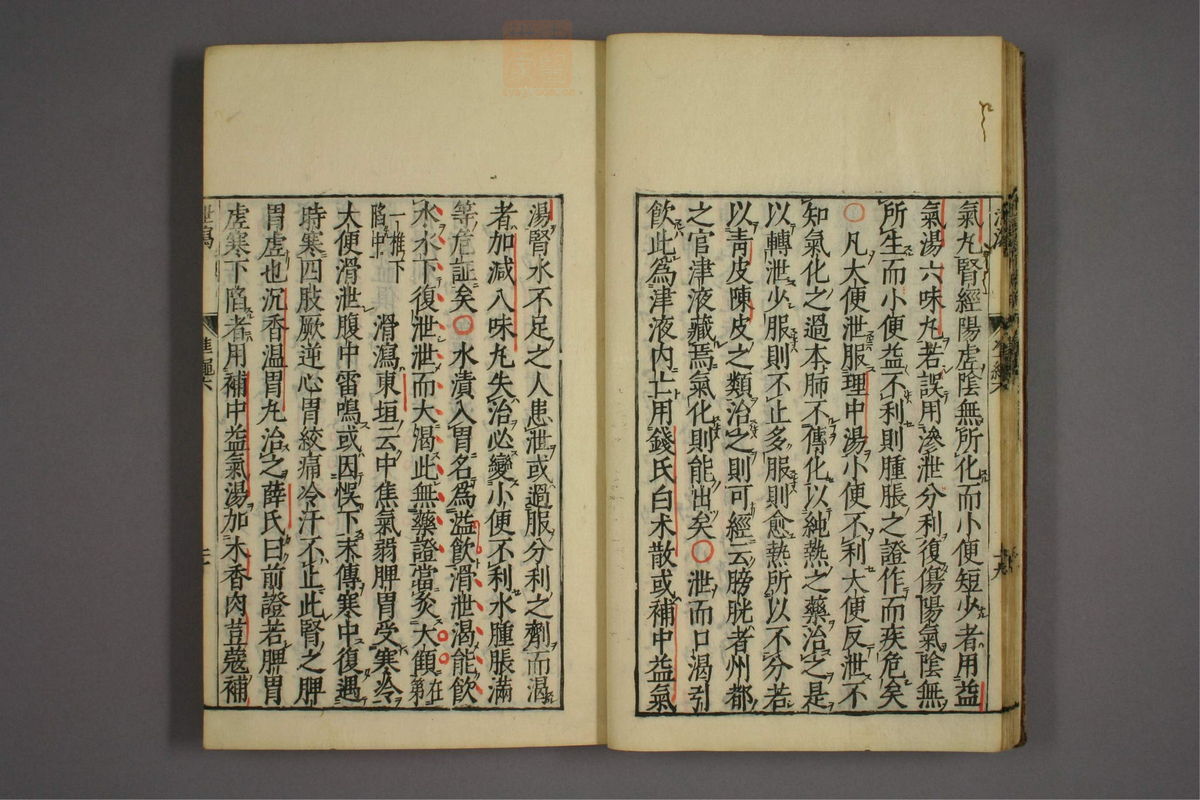 氣丸腎經陽虛陰無所化而小便短少者用益
氣湯六味丸若誤用滲泄分利復傷陽氣陰無
所生而小便益不利則腫脹之證作而疾危矣
○凡大便泄服理中湯小便不利大便反泄不
知氣化之過本肺不傳化以純熱之藥治之是
以轉泄少服則不止多服則愈熱所以不分若
以青皮陳皮之類治之則可經云膀胱者州都
之官津液藏焉氣化則能出矣○泄而口渴引
飲此為津液內亡用錢氏白朮散或補中益氣
湯腎水不足之人患泄或過服分利之劑而渴
者加減八味丸失治必變小便不利水腫脹滿
等危証矣○水漬入胃名為溢飲滑泄渴能飲
水水下復泄泄而大渴此無藥證當灸大顀在第
一椎下
陷中滑瀉東垣云中焦氣弱脾胃受寒冷
大便滑泄腹中雷鳴或因悞下末傳寒中復遇
時寒四肢厥逆心胃絞痛冷汗不止此腎之脾
胃虛也沉香溫胃丸治之薛氏曰前證若脾胃
虛寒下陷者用補中益氣湯加木香肉荳蔻補